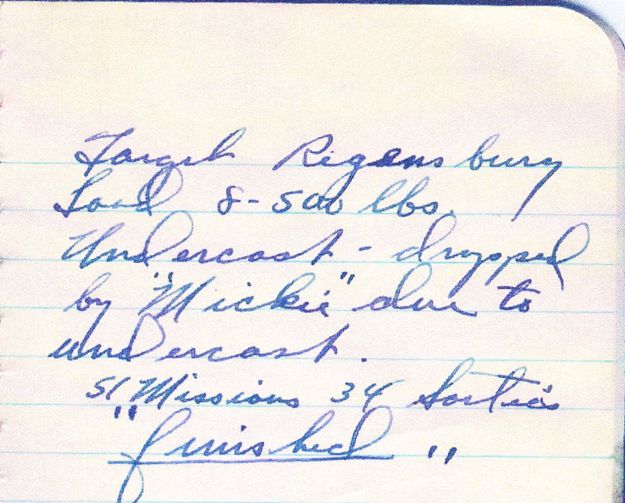 Target Regensburg
Load 8-500 lbs.
Undercast - dropped
by "Mickie" due to
undercast.
51 Missions 34 Sorties
"finished"